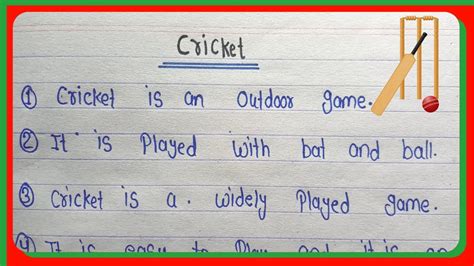 Cricket
① Cricket is an outdoor game.
② It is Played with bat and ball.
③ Cricket is a. widely Played game.
④ It is easy to Play and it is an